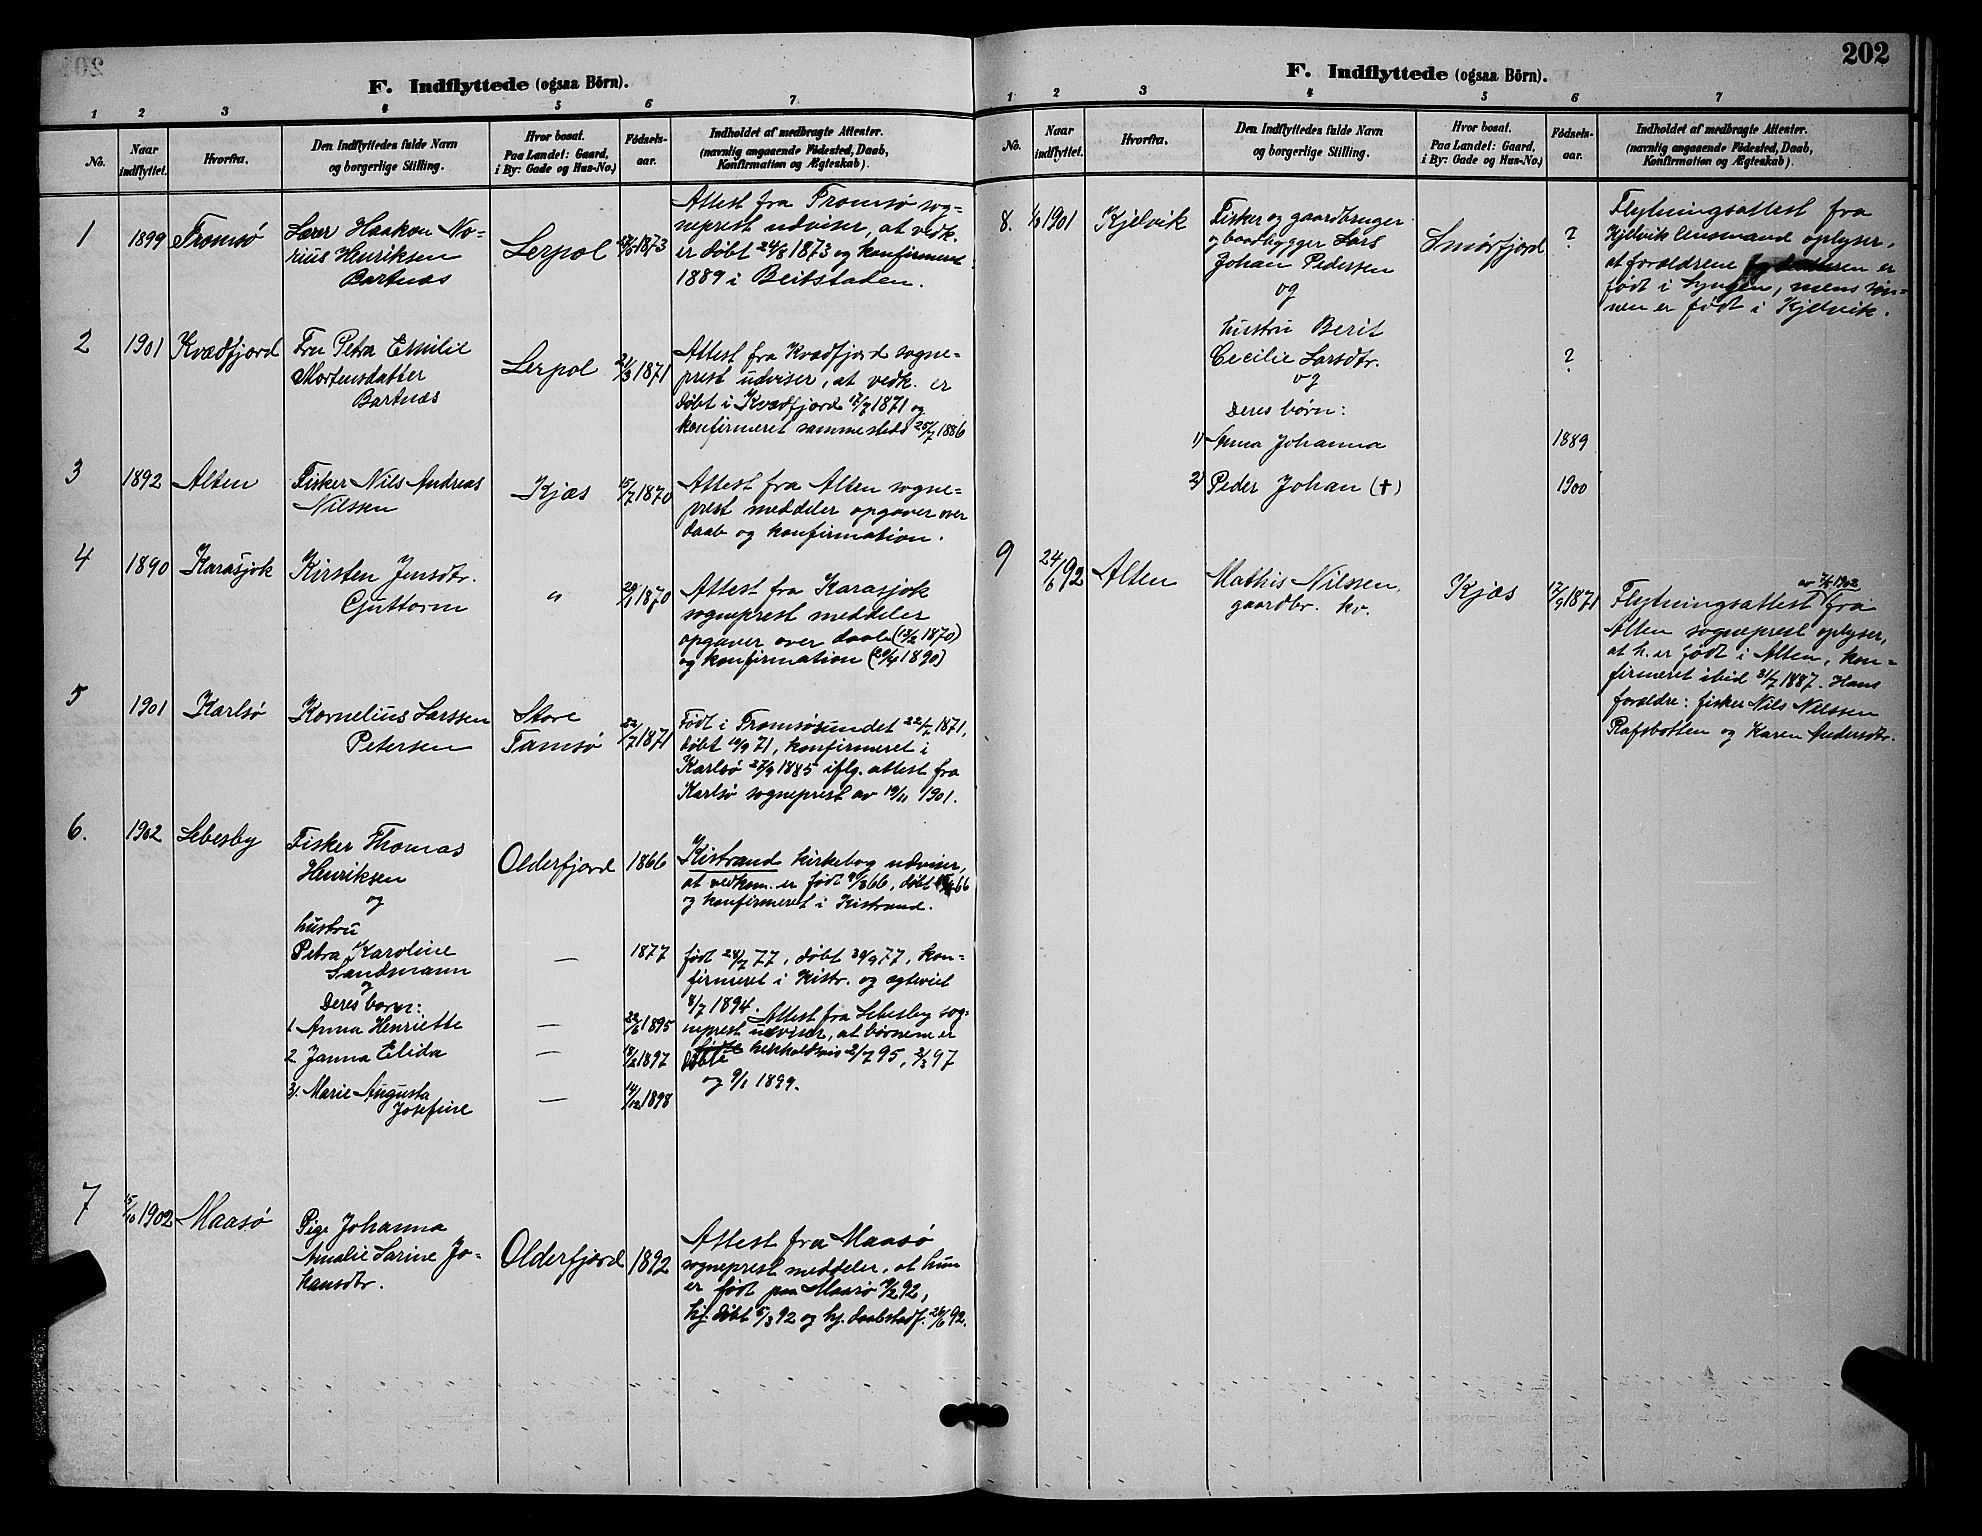 202
F. Indflyttede (ogsaa Börn).
1 2 3 4 5 6 7
No.
Naar indflyttet.
Hvorfra.
Den Indflyttedes fulde Navn
og borgerlige Stilling.
Hvor bosat.
Paa Landet: Gaard,
i By: Gade og Hus-No.)
Födsels-
aar.
Indholdet af medbragte Attester.
(navnlig angaaende Födested, Daab,
Konfirmation og Ægteskab).
1 1899 Tromsø
Lærer Haakon No-
rius Henriksen
Bartnæs
Lerpol
1873
Attest fra Tromsø sog-
neprest udviser, at vedk.
er døbt 24/8 1873 og konfirmeret
1889 i Beitstaden.
2 1901 Kvædfjord
Fru Petra Emilie
Mortensdatter
Bartnæs
Lerpol
21/3 1871
Attest fra Kvædfjord sogne-
prest udviser, at vedk. er
døbt i Kvædfjord 17/7 1871 og
konfirmeret sammesteds 25/7 1886
3 1892 Alten
Fisker Nils Andreas
Nilssen
Kjæs
15/7 1870
Attest fra Alten sogne-
prest meddeler opgaver over
daab og konfirmation.
4 1890 Karasjok
Kirsten Jensdtr.
Guttorm
"
29/1 1870
Attest fra Karasjok
sogneprest meddeler
opgaver over daab (13/2 1870)
og konfirmation (20/4 1890)
5 1901 Karlsø
Kornelius Larssen
Petersen
Store
Tamsø
22/7 1871
Født i Tromsøsundet 22/7 1871,
døbt 10/9 71, konfirmeret i
Karlsø 27/9 1885 iflg. attest fra
Karlsø sogneprest av 19/11 1901.
6. 1902 Lebesby
Fisker Thomas
Henriksen
og
hustru
Petra Karoline
Sandmann
og
Deres barn:
1 Anna Henriette
2 Janna Elida
3. Marie Augusta
Josefine
Olderfjord
—
—
—
—
1866
1877
22/6 1895
1897
14/12 1898
Kistrand kirkebog udviser,
at vedkom. er født 66, døbt 66
og konfirmeret i Kistrand.
født 24/7 77, døbt 30/9 77, kon-
firmeret i Kistr. og egteviet
8/7 1894. Attest fra Lebesby sog-
neprest udviser, at børnene er
døbte henholdsvis 2/7 95, 2/3 97
og 9/1 1899.
7 15/10 1902 Maasø
Pige Johanna
Amalie Sarine Jo-
hansdtr.
Olderfjord
1892
Attest fra Maasø
sogneprest meddeler, at hun
er født paa Maasø 92,
hj. døbt 5/3 92 og hj. daabstadf. 26/6 92.
F. Indflyttede (ogsaa Börn).
1 2 3 4 5 6 7
No.
Naar
indflyttet.
Hvorfra.
Den Indflyttedes fulde Navn
og borgerlige Stilling.
Hvor bosat.
Paa Landet: Gaard,
i By: Gade og Hus-No.)
Födsels-
aar.
Indholdet af medbragte Attester.
(navnlig angaaende Födested, Daab,
Konfirmation og Ægteskab).
8. 1901 Kjelvik
Fisker og gaardbruger
og baadbygger Lars
Johan Pedersen
og
hustru Berit
Cecilie Larsdtr.
og
Deres børn:
1) Anna Johanna
2) Peder Johan (†)
Smørfjord
?
?
1889
1900
Flytningsattest fra
Kjelvik lensmand oplyser,
at forældrene og datteren er
født i Lyngen, mens søn-
nen er født i Kjelvik.
9 24/6 92 Alten
Mathis Nilssen,
gaardbr. hv.
Kjæs
17/9 1871
av 7/5 1902
Flytningsattest fra
Alten sogneprest oplyser,
at h. er født i Alten, kon-
firmeret ibid 31/7 1887. Hans
foraldre: fisker Nils Nilssen
Rafsbotten og Karen Andersdtr.